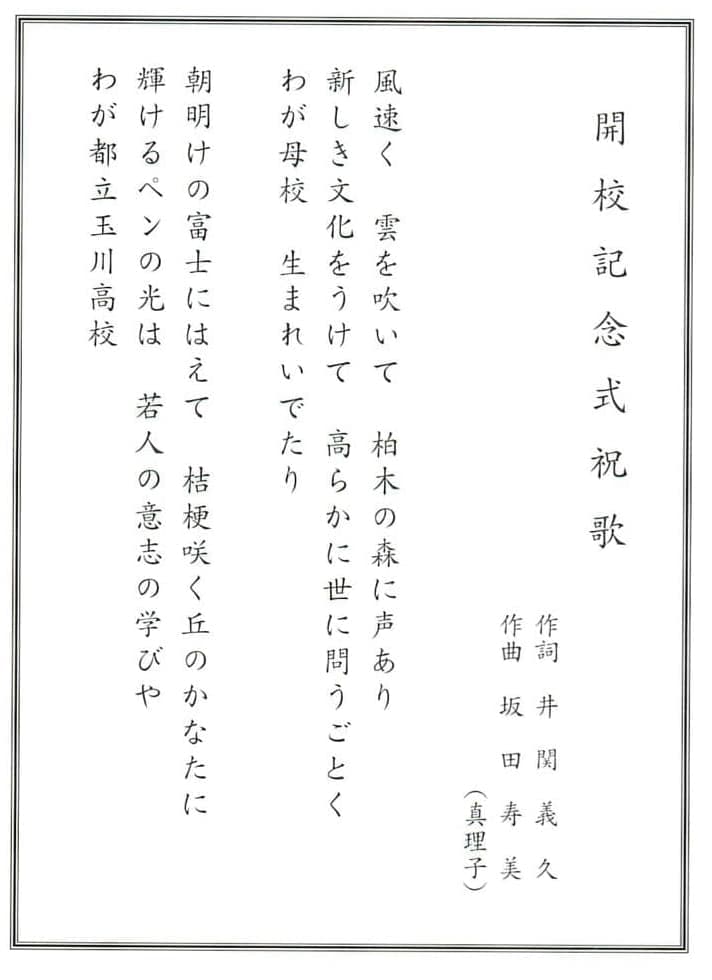 開校記念式祝歌
作詞 井関義久
作曲 坂田寿美
（真理子）
風速く 雲を吹いて 柏木の森に声あり
新しき文化をうけて 高らかに世に問うごとく
わが母校 生まれいでたり
朝明けの富士にはえて 桔梗咲く丘のかなたに
輝けるペンの光は 若人の意志の学びや
わが都立玉川高校